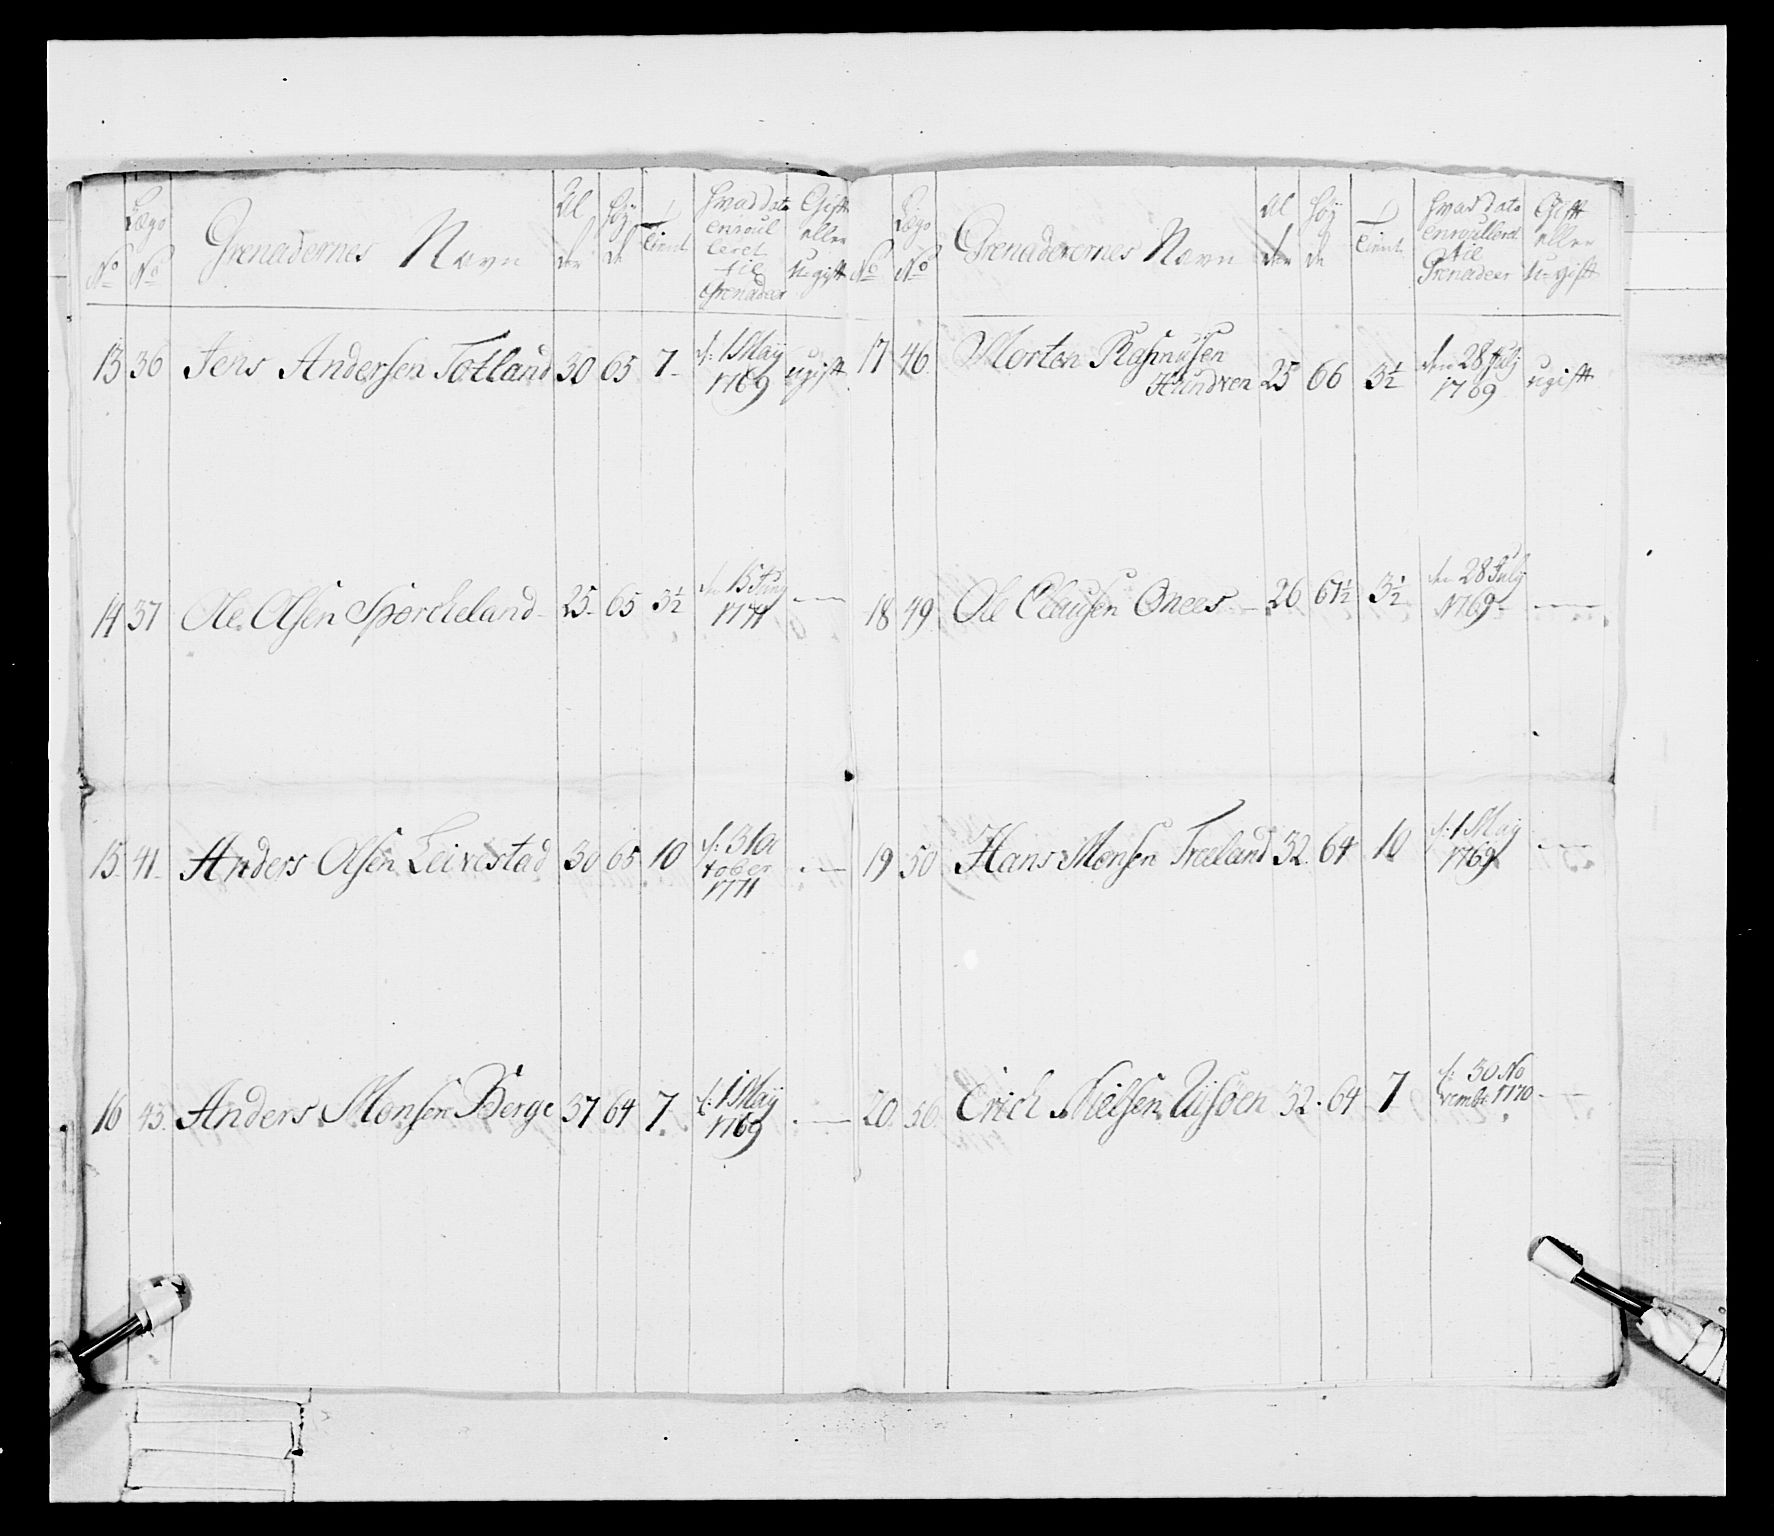 No
Lægs No
Grenadernes Navn
Alder
Høyde
Tient
Hvad dato enroulleret til Grenadeer
Gift eller Ugift
13 36 Jens Andersen Totland 30 65 7 d: 1 Maÿ 1769 ugift
14 37 Ole Olsen Sporcheland 25 65 3½ den 15 Junÿ 1771 —
15 41 Anders Olsen Leivestad 30 65 10 d: 31 October 1771 —
16 43 Anders Monsen Berge 37 64 7 d: 1 Maÿ 1769 —
No
Lægs No
Grenaderernes Navn
Alder
Høyde
Tient
Hvad dato enroulleret til Grenadeer
Gift eller U-gift
17 46 Morten Rasmusen Hundven 25 66 3½ den 28 Julÿ 1769 ugift
18 49 Ole Clausen Onees 26 67½ 3½ den 28 Julÿ 1769 —
19 50 Hans Monsen Træland 32 64 10 d: 1 Maÿ 1769 —
20 56 Erich Nielsen 32 64 7 d: 30 November 1770 —